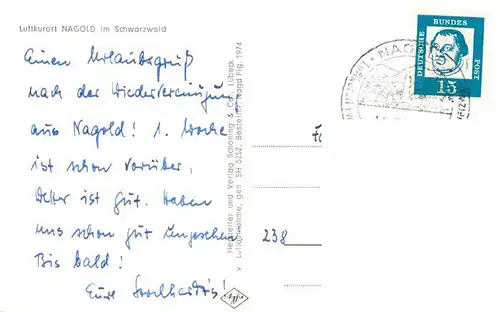 Luftkurort NAGOLD im Schwarzwald
Einen Urlaubsgruß
nach der Wiedervereinigung
aus Nagold! 1. Woche
ist schon vorüber,
Wetter ist gut. Haben
uns schon gut umgesehen
Bis bald!
Eure
Hersteller und Verlag Schöning & Co., Lübeck
v Luftaufnahme, gen. SH 5252, Bestell-Nr. Nagd Flg. 1974
DEUTSCHE
BUNDES
POST
15
NAG
238